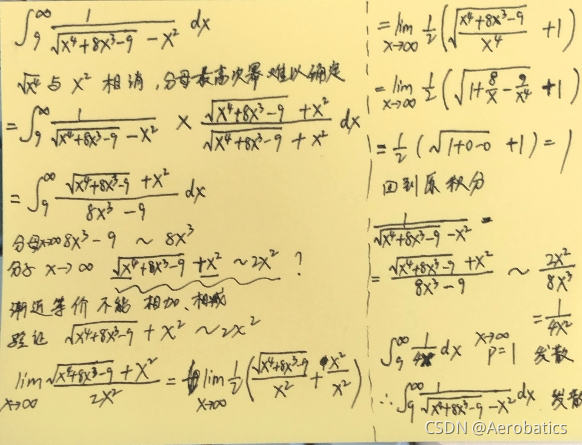 ∫₉^∞ 1/(√(x⁴+8x³-9) - x²) dx
√x⁴ 与 x² 相消, 分母最高次幂难以确定
= ∫₉^∞ 1/(√(x⁴+8x³-9) - x²) × (√(x⁴+8x³-9) + x²)/(√(x⁴+8x³-9) + x²) dx
= ∫₉^∞ (√(x⁴+8x³-9) + x²)/(8x³-9) dx
分母x→∞ 8x³-9 ~ 8x³
分子 x→∞ √(x⁴+8x³-9) + x² ~ 2x² ?
渐近等价不能 相加、相减
验证 √(x⁴+8x³-9) + x² ~ 2x²
lim x→∞ (√(x⁴+8x³-9) + x²)/(2x²) = lim x→∞ 1/2 (√(x⁴+8x³-9)/x² + x²/x²)
= lim x→∞ 1/2 (√((x⁴+8x³-9)/x⁴) + 1)
= lim x→∞ 1/2 (√(1+8/x-9/x⁴) + 1)
= 1/2 (√(1+0-0) + 1) = 1
回到原积分
1/(√(x⁴+8x³-9) - x²) =
= (√(x⁴+8x³-9) + x²)/(8x³-9) ~ 2x²/8x³
= 1/4x²
∫₉^∞ 1/4x dx x→∞ P=1 发散
∴ ∫₉^∞ 1/(√(x⁴+8x³-9) - x²) dx 发散
CSDN @Aerobatics